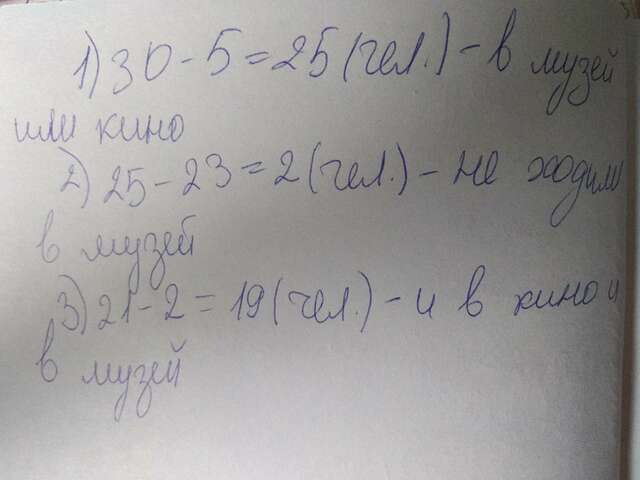 1) 30 - 5 = 25 (чел.) - в музей
или кино
2) 25 - 23 = 2 (чел.) - не ходили
в музей
3) 21 - 2 = 19 (чел.) - и в кино и
в музей